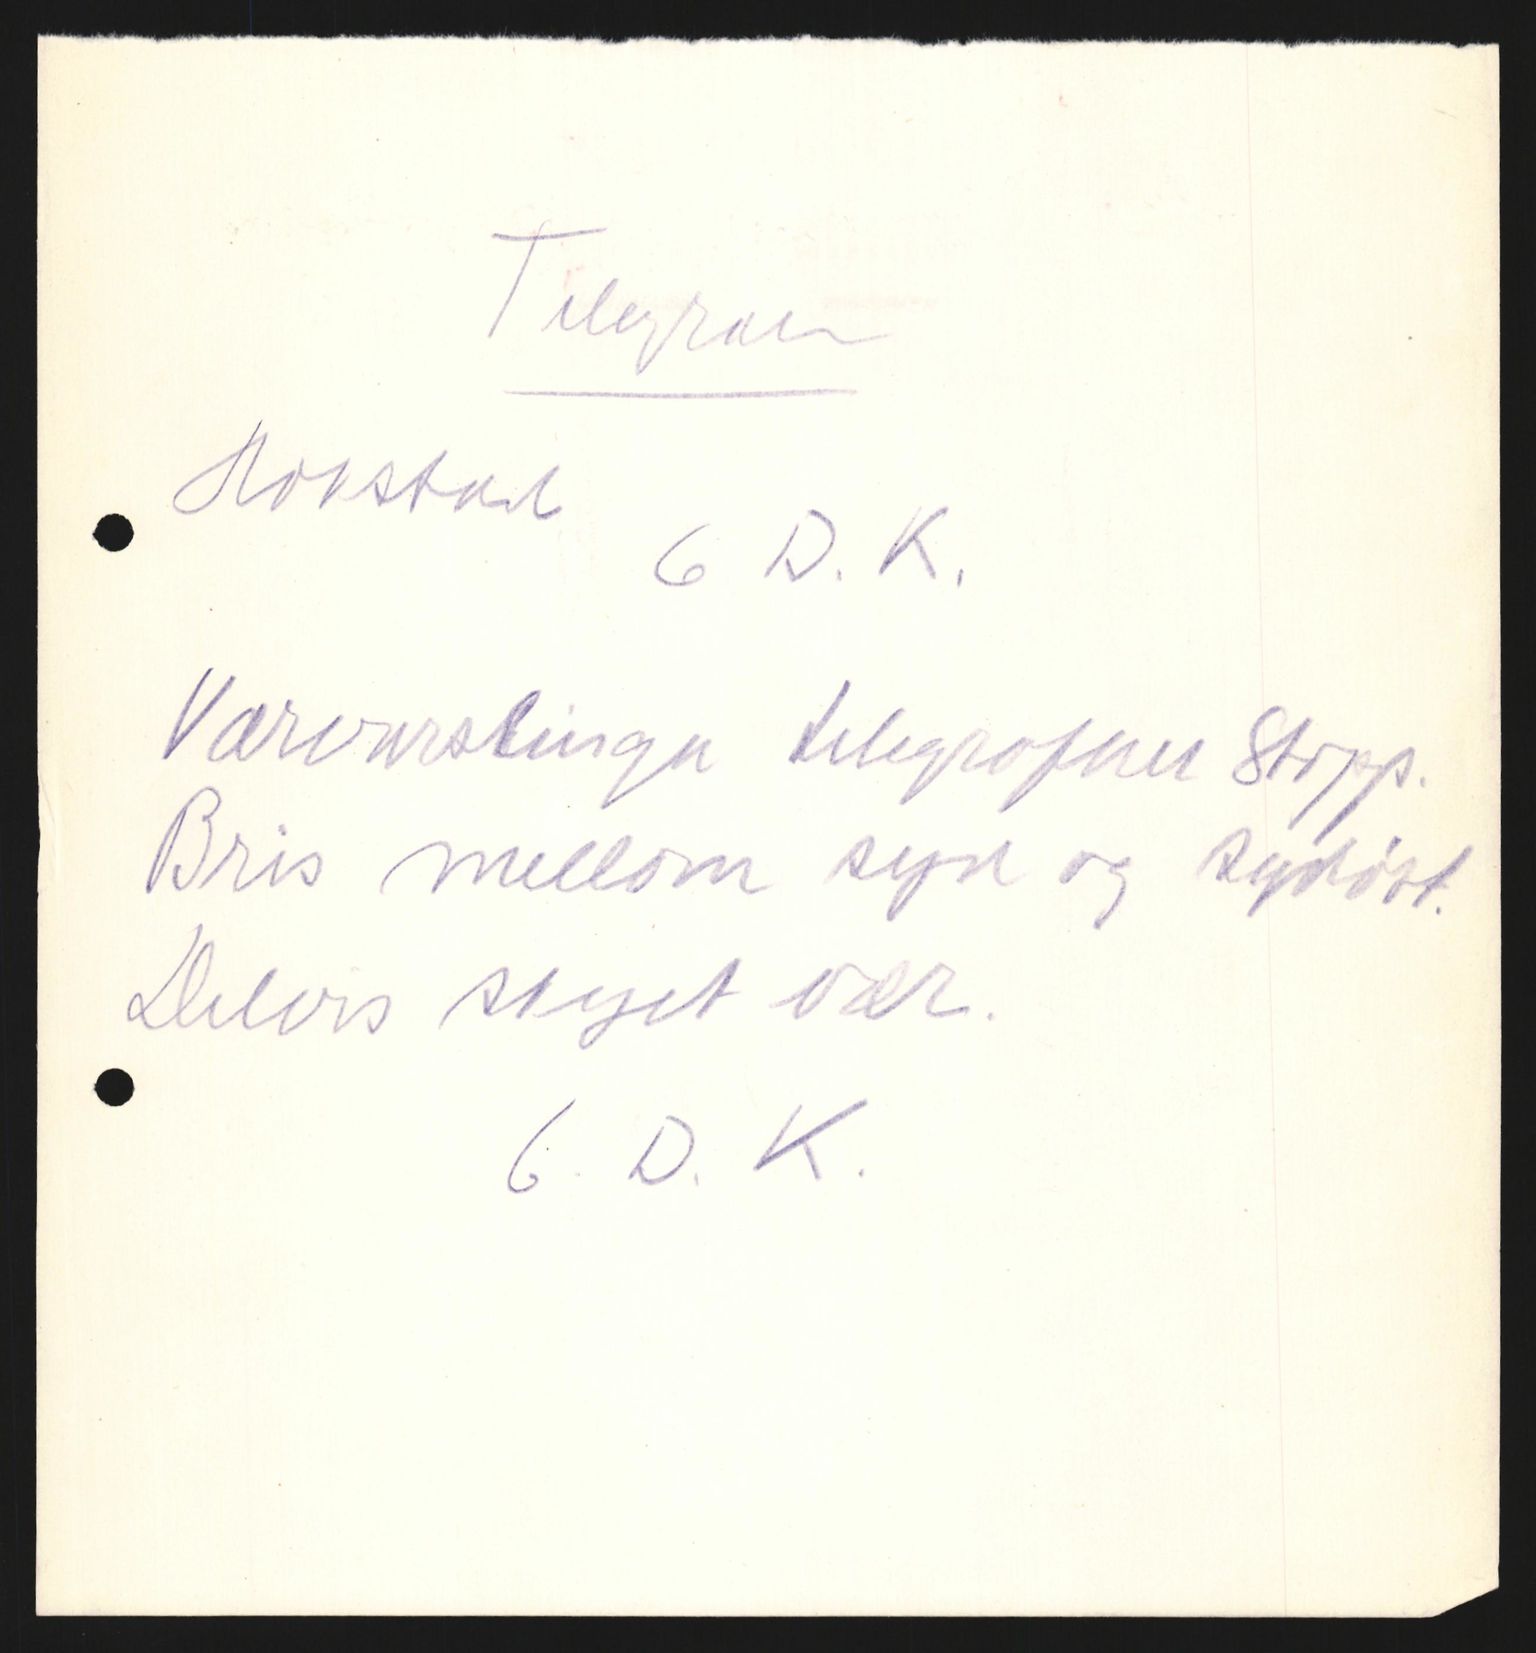 Telegram
Nokstad
6 D. K.
Værvarslinga telegraferer Stopp.
Bris mellom syd og sydöst.
Delvis skyet vær.
6. D. K.